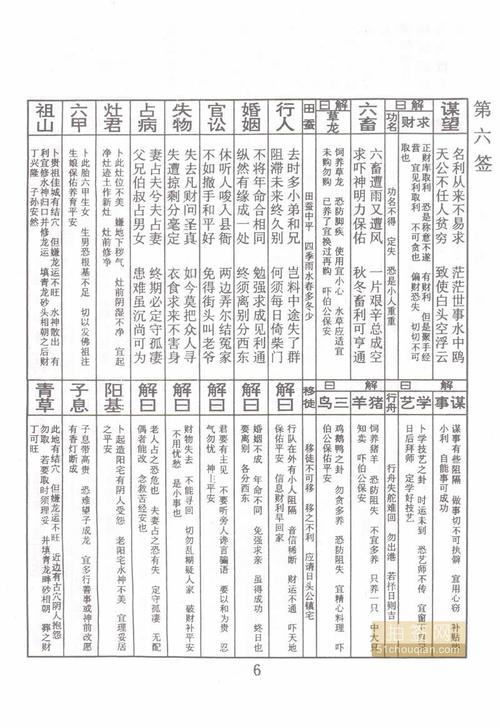 第六签
谋望
名利从来不易求 茫茫世事水中鸥
天公不任人贫穷 致使白头空浮云
解曰
求财
正财库取利 恐是称意不遂 有财利 但是聚手经营 宜见利取利 不可贪也 偏财恐失 切切不可取也
功名
功名不得 定失 恐是小人重重
六畜
六畜遭雨又遭风 一片艰辛总成空
求下神明力保佑 秋冬畜利可亨通
解曰
草龙
饲养草龙 恐防脚疾 使用宜小心 水草应适宜 未购勿购 已养了宜换过再购 吓伯公保安
田蚕
田蚕中平 四季雨水春多冬少
行人
去时多小弟和兄 岂料中途失了群
阻滞未来终久别 何须每日倚柴门
婚姻
不将年命合相同 勉强求成见利通
纵然有缘成一处 终须离别分西东
官讼
休听人唆入县衙 两边弄尔结冤家
不如撤手和平好 免得街头叫老爷
失物
失去凡财问圣真 如今莫把众人寻
失遭掠剩分毫定 衣食求来不害身
占病
妻占夫兮夫占妻 终期必定守孤凄
父兄伯叔占男女 患难虽沉尚可为
灶君
卜此灶位不美 嫌地下秽气 灶前阴湿不净 宜起净灶迹土作新灶 灶前修净
六甲
卜此胎六甲生女 生男恐根基不足 切以发佛祖注生娘保佑养育平安
祖山
卜贵祖佳城有结穴 但嫌龙运不旺 水神散出 有利宜修水神归口并修龙运 填青龙砂头相朝之后财丁兴隆 子孙安然
谋事
解曰
谋事有些阻隔 做事切不可执僻 宜用心窃 补贴小利 自能事可成功
学艺
卜学技艺之卦 时运未到 恐艺师不传 宜窗下日后拜师 定学好技艺
行舟
行舟失舵难回 勿出港 若抒日则吉
猪羊
解曰
饲养猪羊 恐防阻失 不宜多养 只养一只 中大知卖 吓伯公保安
三鸟
鸡鹅鸭之卦 勿贪多养 恐防阻失 宜精心料理 吓伯公保佑平安
移徒
移徒不可移 移之不利 应请日头公镇宅
解曰
行队在外有小人阻隔 音信稀断 财运不通 吓天地保佑平安 信息财利早回家
解曰
婚姻不成 年命不同 免强求亲 虽得成功 终日也要离别 各分西东
解曰
君要有主见 不要听旁人谗言骗语 要以和为贵 忍气勿忧 神一平安
解曰
财物失去 不能寻回 切勿乱糊疑人家 破财补平安 不用忧愁 是小事也
解曰
老人占之恐危也 夫妻占之恐有失 定守孤凄 无配偶者能改 念救苦经安也
阳基
卜起造阳宅有阴人受怨 老阳宅水神不美 宜理妥居之平安
子息
子息带高贵 恐难望子成龙 宜多行善事或神前改愿有香灯断承
青草
此地有结穴 但嫌龙运不旺 近边有古穴阴人抱怨 勿取 若要取时须理妥 并填青龙畔砂相朝 葬之财丁可旺
6
抽签网
51chouqian.com